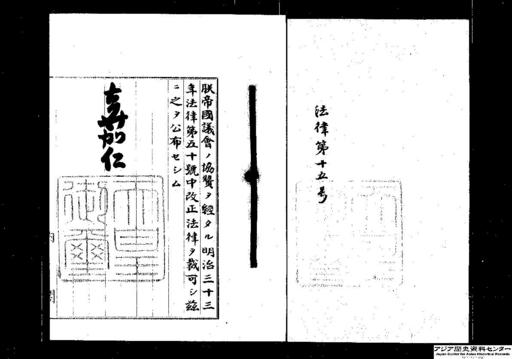 法律第十五号
朕帝國議會ノ協贊ヲ經タル明治三十三
年法律第五十號中改正法律ヲ裁可シ茲
ニ之ヲ公布セシム
嘉仁
天皇
御璽
アジア歴史資料センター
Japan Center for Asian Historical Records